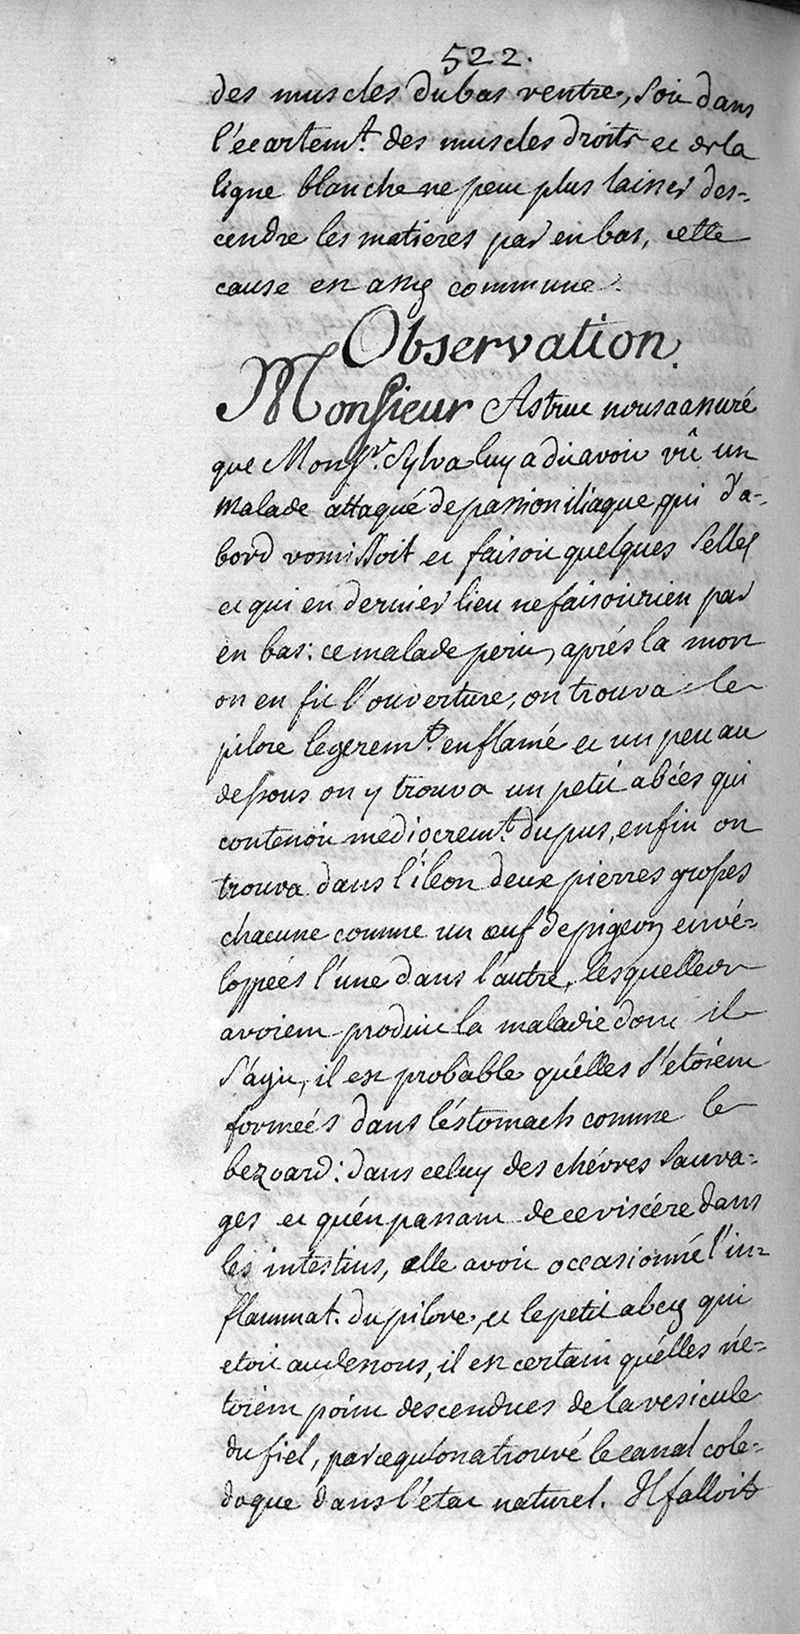 522.
des muscles du bas ventre, soit dans
l'écartem.t des muscles droits et de la
ligne blanche ne peut plus laisser des=
cendre les matieres par en bas, cette
cause est assez commune.
Observation.
Monsieur Astruc nous a assuré
que Mons.r Sylva luy a dit avoir vû un
malade attaqué de passion iliaque, qui d'a=
bord vomissoit et faisoit quelques selles
et qui en dernier lieu ne faisoit rien par
en bas: ce malade perit, aprés la mort
on en fit l'ouverture, on trouva le
pilore legerem.t enflamé et un peu au
dessous on y trouva un petit abcés qui
contenoit mediocrem.t du pus, enfin on
trouva dans l'iléon deux pierres grosses
chacune comme un œuf de pigeon envé=
loppeés l'une dans l'autre, lesquelles
avoient produit la maladie dont il
s'agit, il est probable qu'élles s'étoient
formeés dans l'éstomach comme le
bezoard: dans celuy des chévres sauva=
ges et qu'én passant de ce viscére dans
les intestins, elle avoit occasionné l'in=
flammat. du pilore, et le petit abcez qui
etoit au dessous, il est certain qu'élles n'é=
toient point descendues de la vesicule
du fiel, parcequ'on a trouvé le canal cole=
doque dans l'état naturel. Il falloit